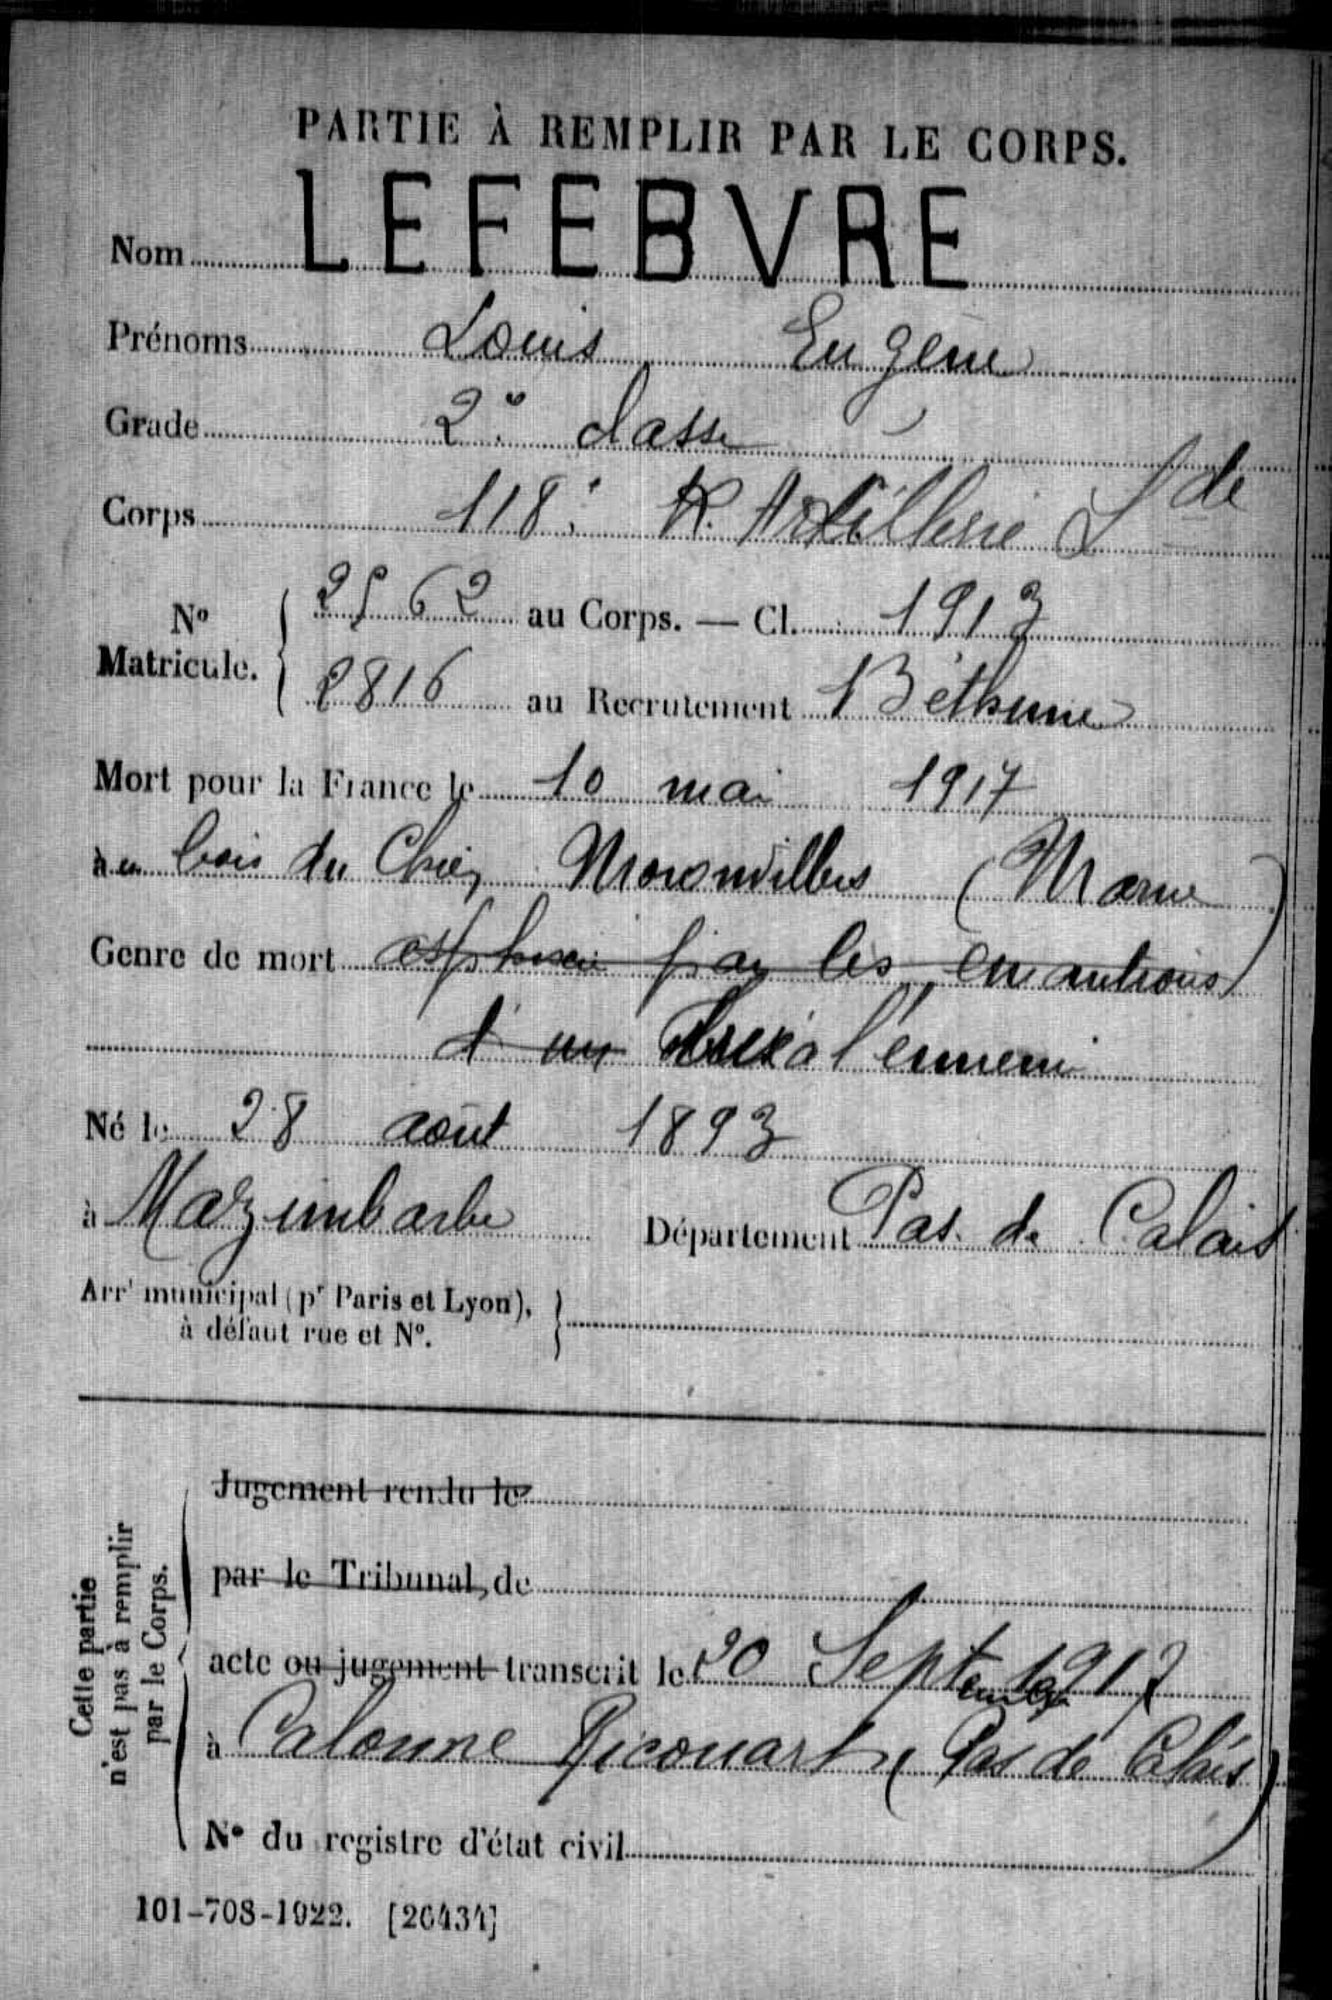 PARTIE À REMPLIR PAR LE CORPS.
Nom LEFEBVRE
Prénoms Louis Eugène
Grade 2e classe
Corps 118e R. Artillerie Lde
No Matricule. 2562 au Corps. — Cl. 1913
2816 au Recrutement Béthune
Mort pour la France le 10 mai 1917
à au bois du Chien Moronvillers (Marne)
Genre de mort asphyxié par les émanations
d'un Tué à l'ennemi
Né le 28 août 1893
à Mazimbarbe Département Pas de Calais
Arrt municipal (pr Paris et Lyon),
à défaut rue et No.
Cette partie
n'est pas à remplir
par le Corps.
Jugement rendu le
par le Tribunal de
acte ou jugement transcrit le 20 Septembre 1917
à Calonne Ricouart (Pas de Calais)
No du registre d'état civil
101-708-1922. [26434]